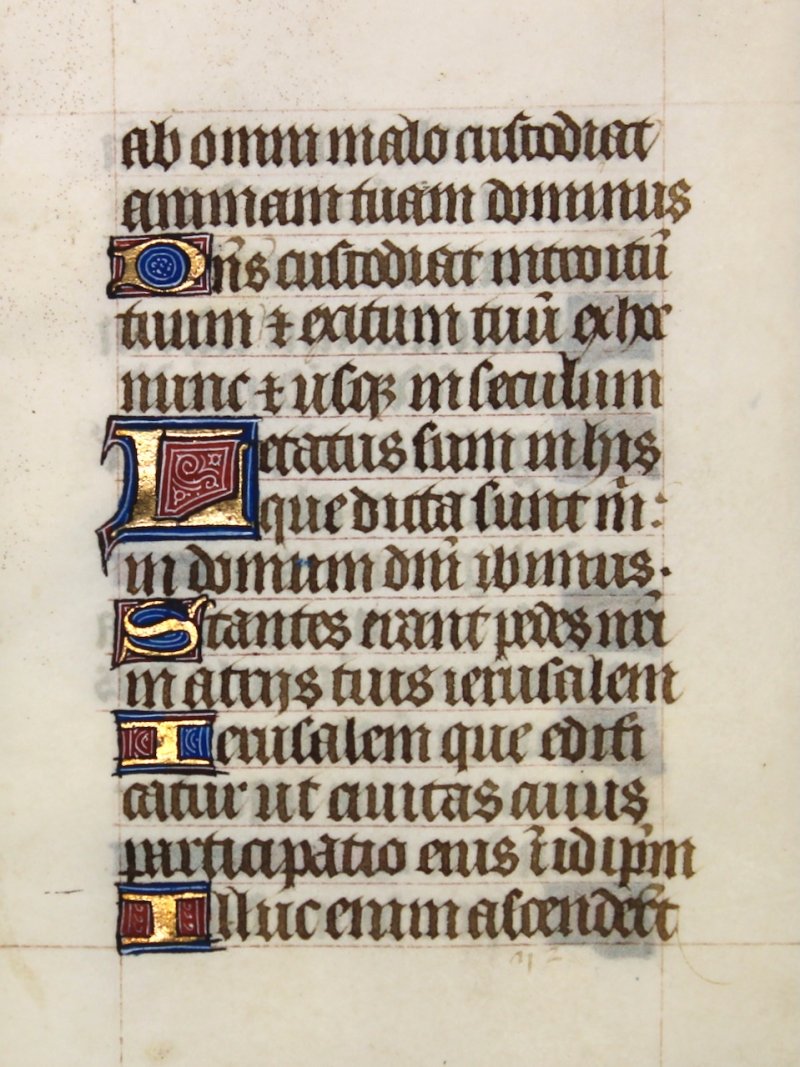 ab omni malo custodiat
animam tuam dominus
Dn̄s custodiat introitū
tuum ⁊ exitum tuū ex hoc
nunc ⁊ usq; in seculum
Letatus sum in his
que dicta sunt m̄:
in domum dnī ibimus.
Stantes erant pedes nrī
in atrijs tuis ierusalem
Ierusalem que edifi
catur ut civitas cuius
participatio eius ī idip̄m
Illuc enim ascenderūt